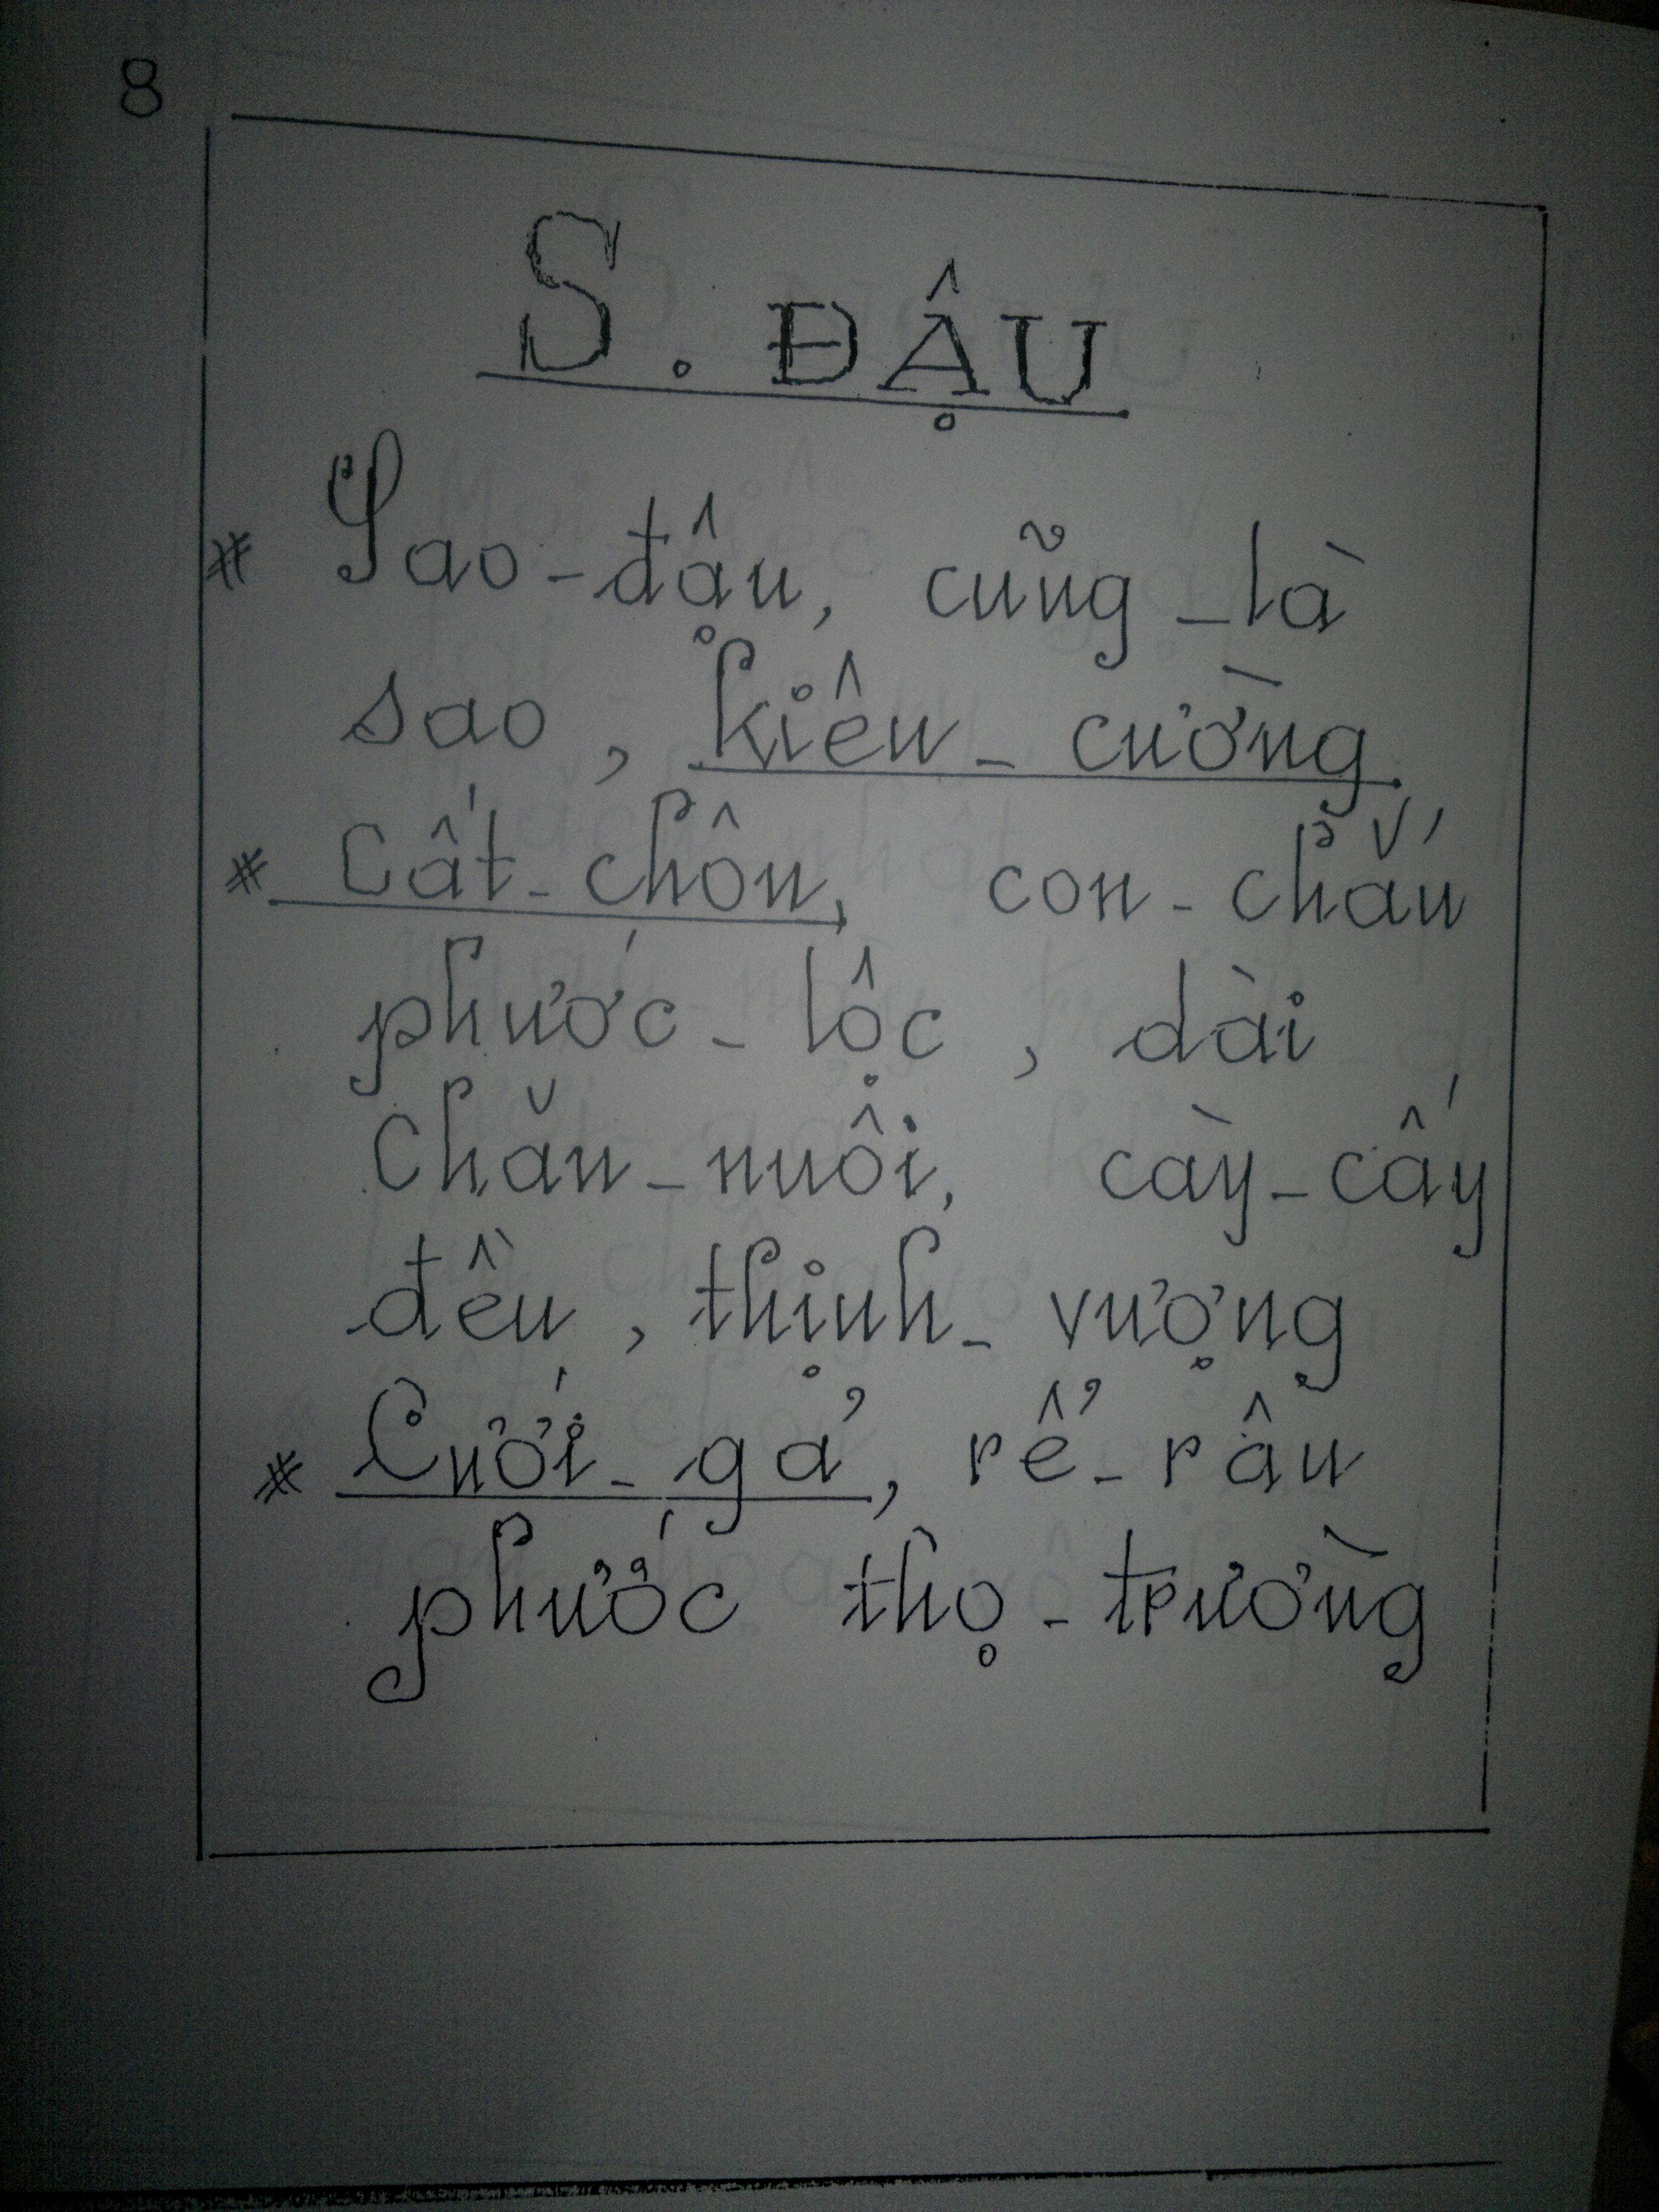 8
S. ĐẬU
* Sao-đậu, cũng-là
sao, kiên-cường
* Cất-chôn, con-chắn
phước-lộc, dài
Chăn-nuôi, cày-cấy
đều, thịnh-vượng
* Cưới-gả, rể-râu
phước thọ-trường